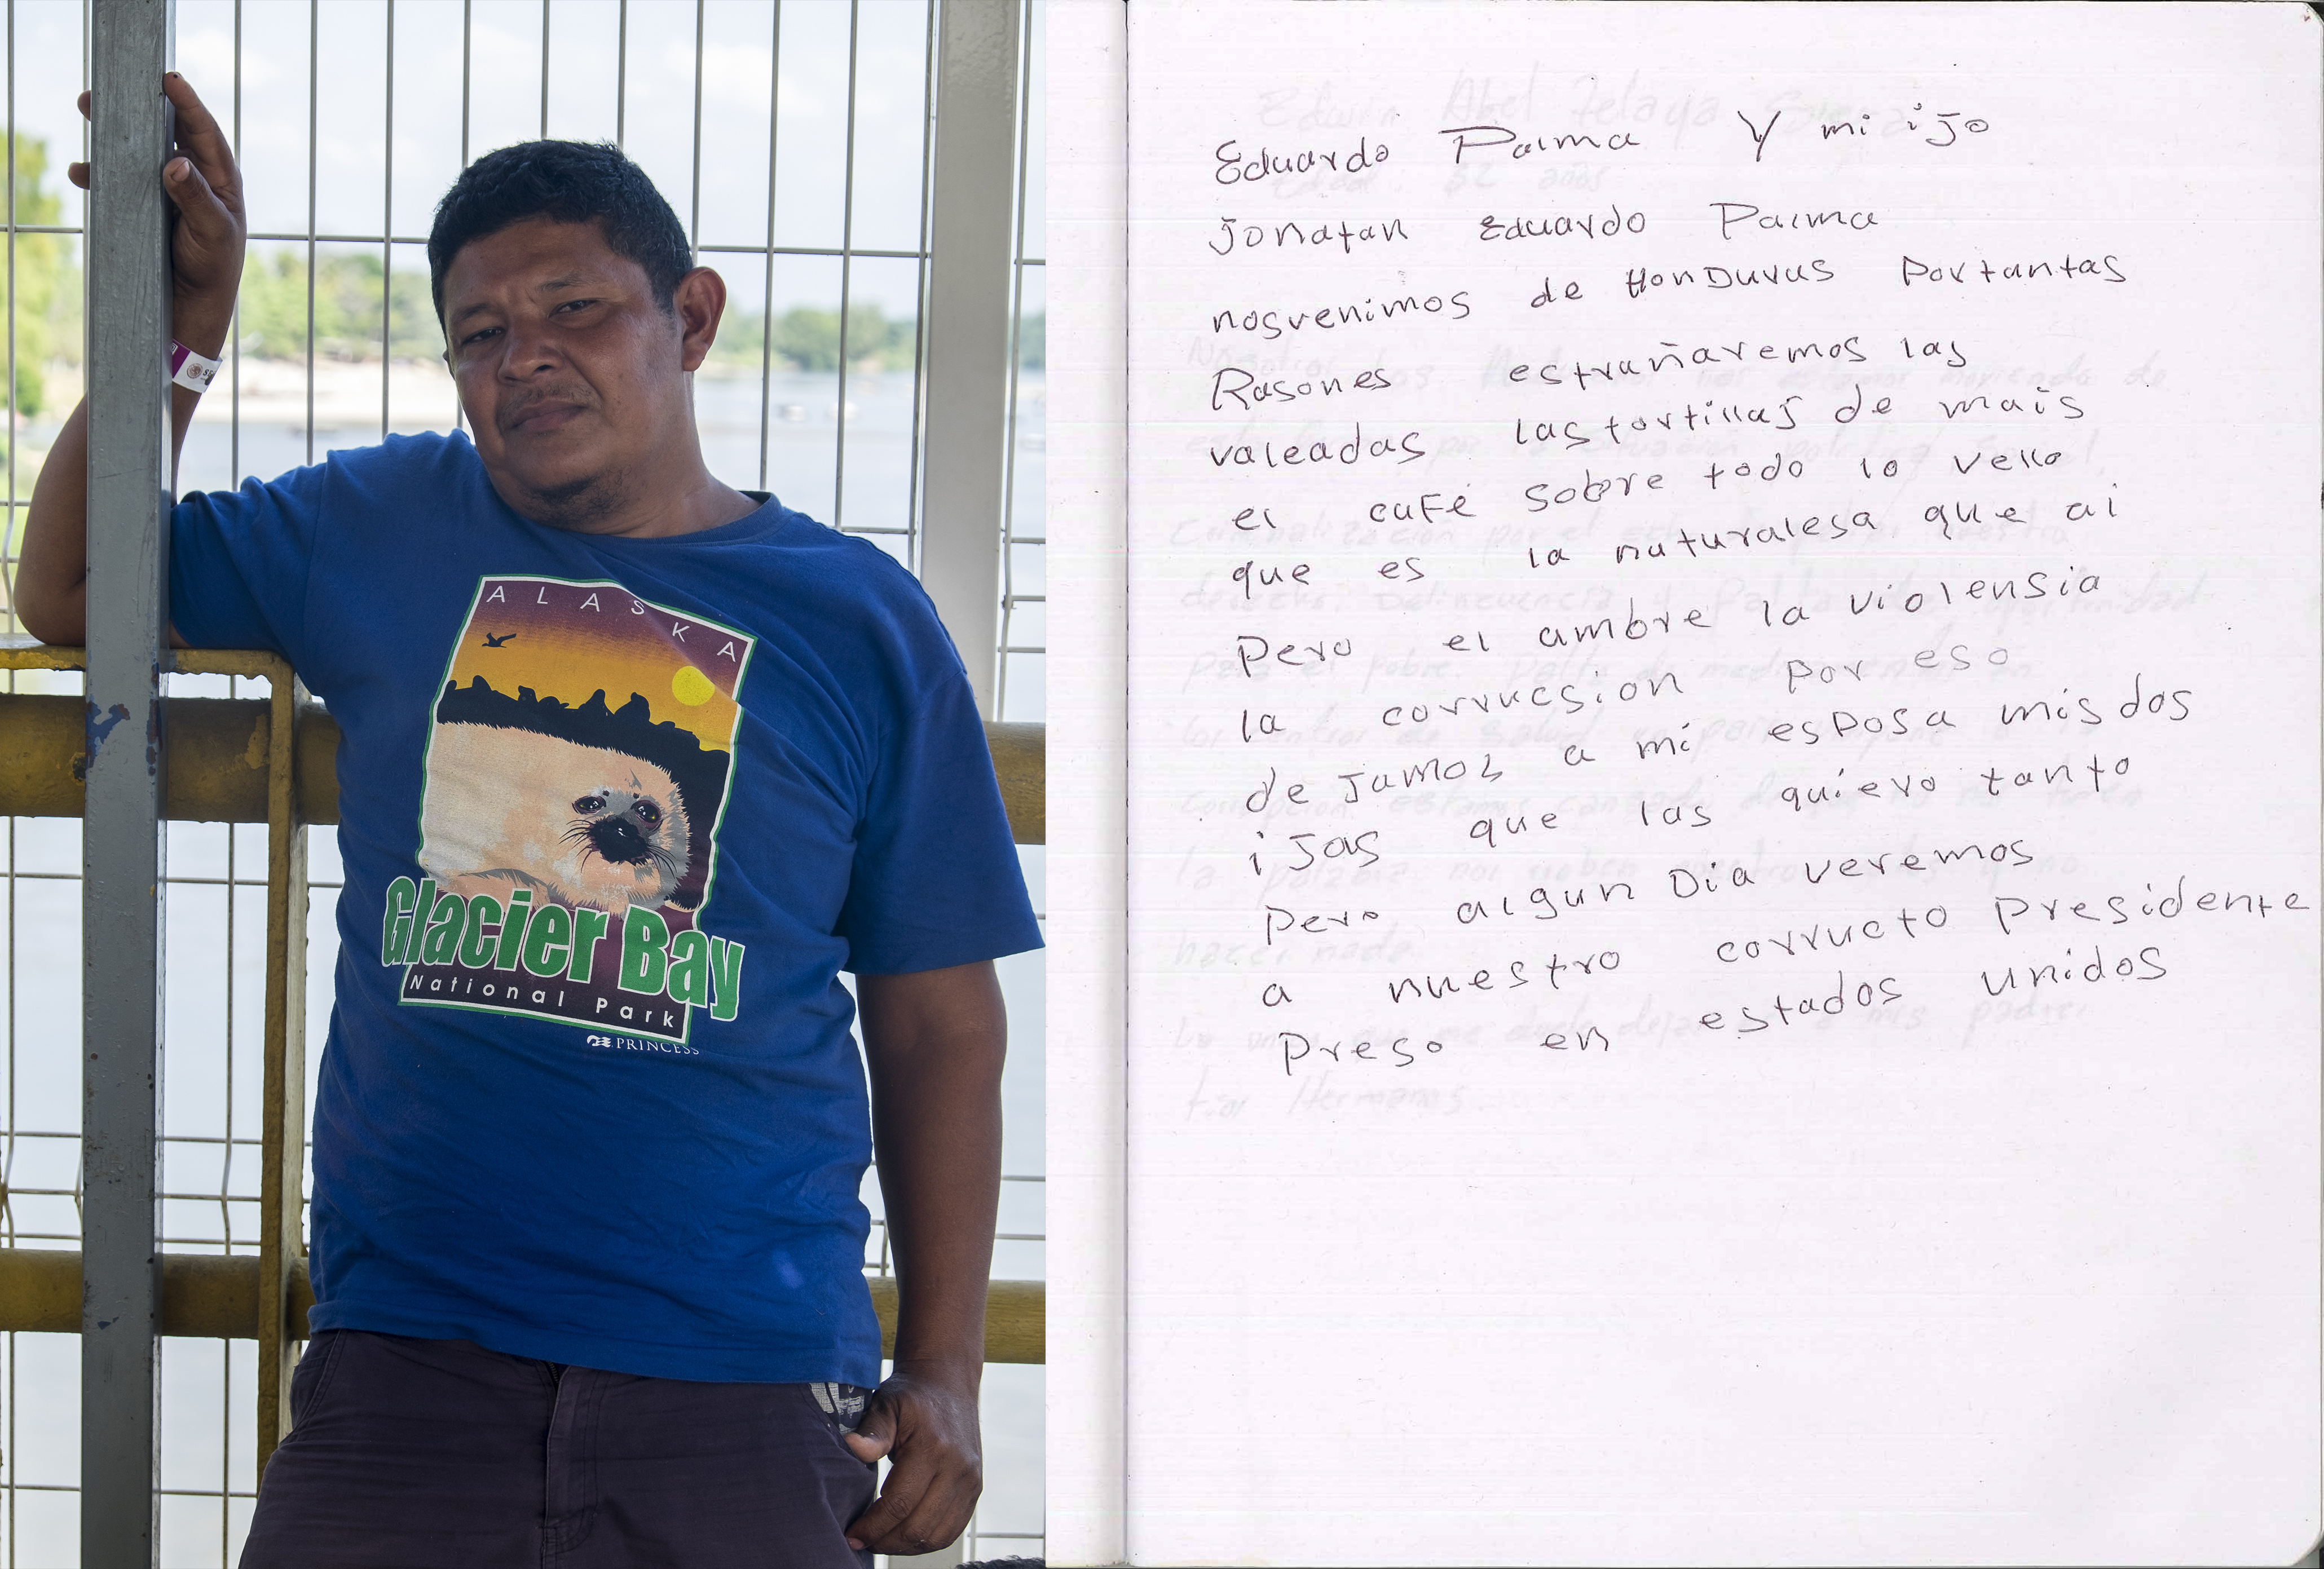 ALASKA
Glacier Bay
National Park
PRINCESS
Eduardo Palma Y mi ijo
Jonatan Eduardo Palma
nosvenimos de HonDuras Portantas
Rasones estrañaremos las
valeadas lastortillas de mais
el cuFé sobre todo lo vello
que es la naturalesa que ai
Pero el ambre la violensia
la corrucsion por eso
de Jamos a mi esposa misdos
iJas que las quiero tanto
Pero algun Dia veremos
a nuestro corructo Presidente
Preso en estados unidos